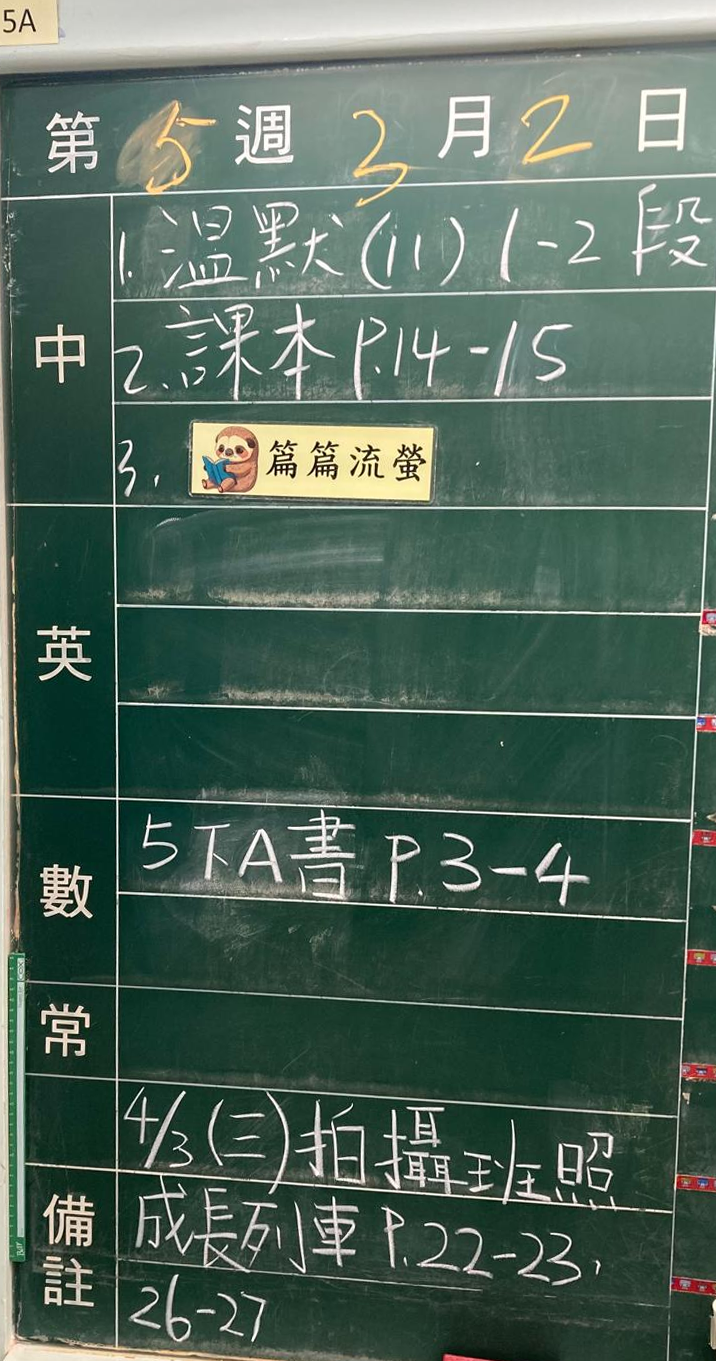 5A
第 5 週 3 月 2 日
中
1. 溫默 (11) 1-2 段
2. 課本 P.14-15
3. 篇篇流螢
英
數
5下A書 P.3-4
常
備註
4/3 (三) 拍攝班照
成長列車 P.22-23,
26-27